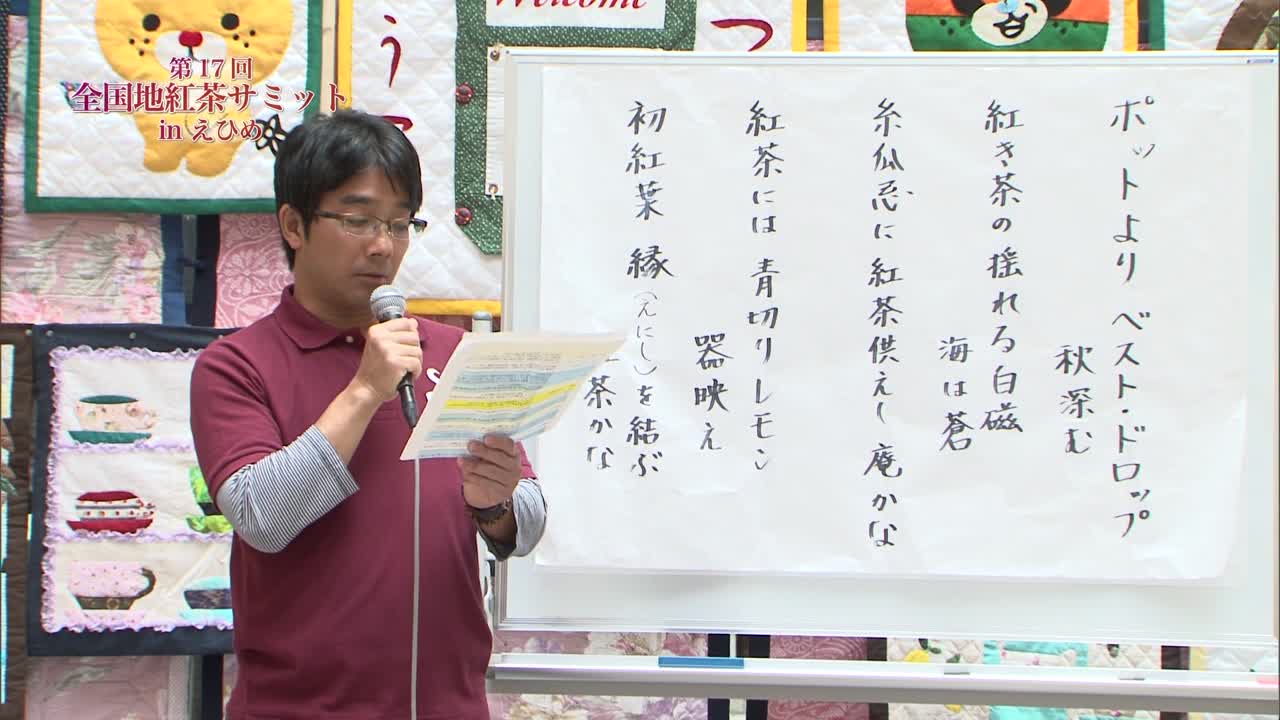 第17回
全国地紅茶サミット
in えひめ
Welcome
う
つ
ポットより ベスト・ドロップ
秋深む
紅き茶の揺れる白磁
海は蒼
糸瓜忌に紅茶供えし 庵かな
紅茶には 青切りレモン
器映え
初紅葉 縁(えにし)を結ぶ
茶かな